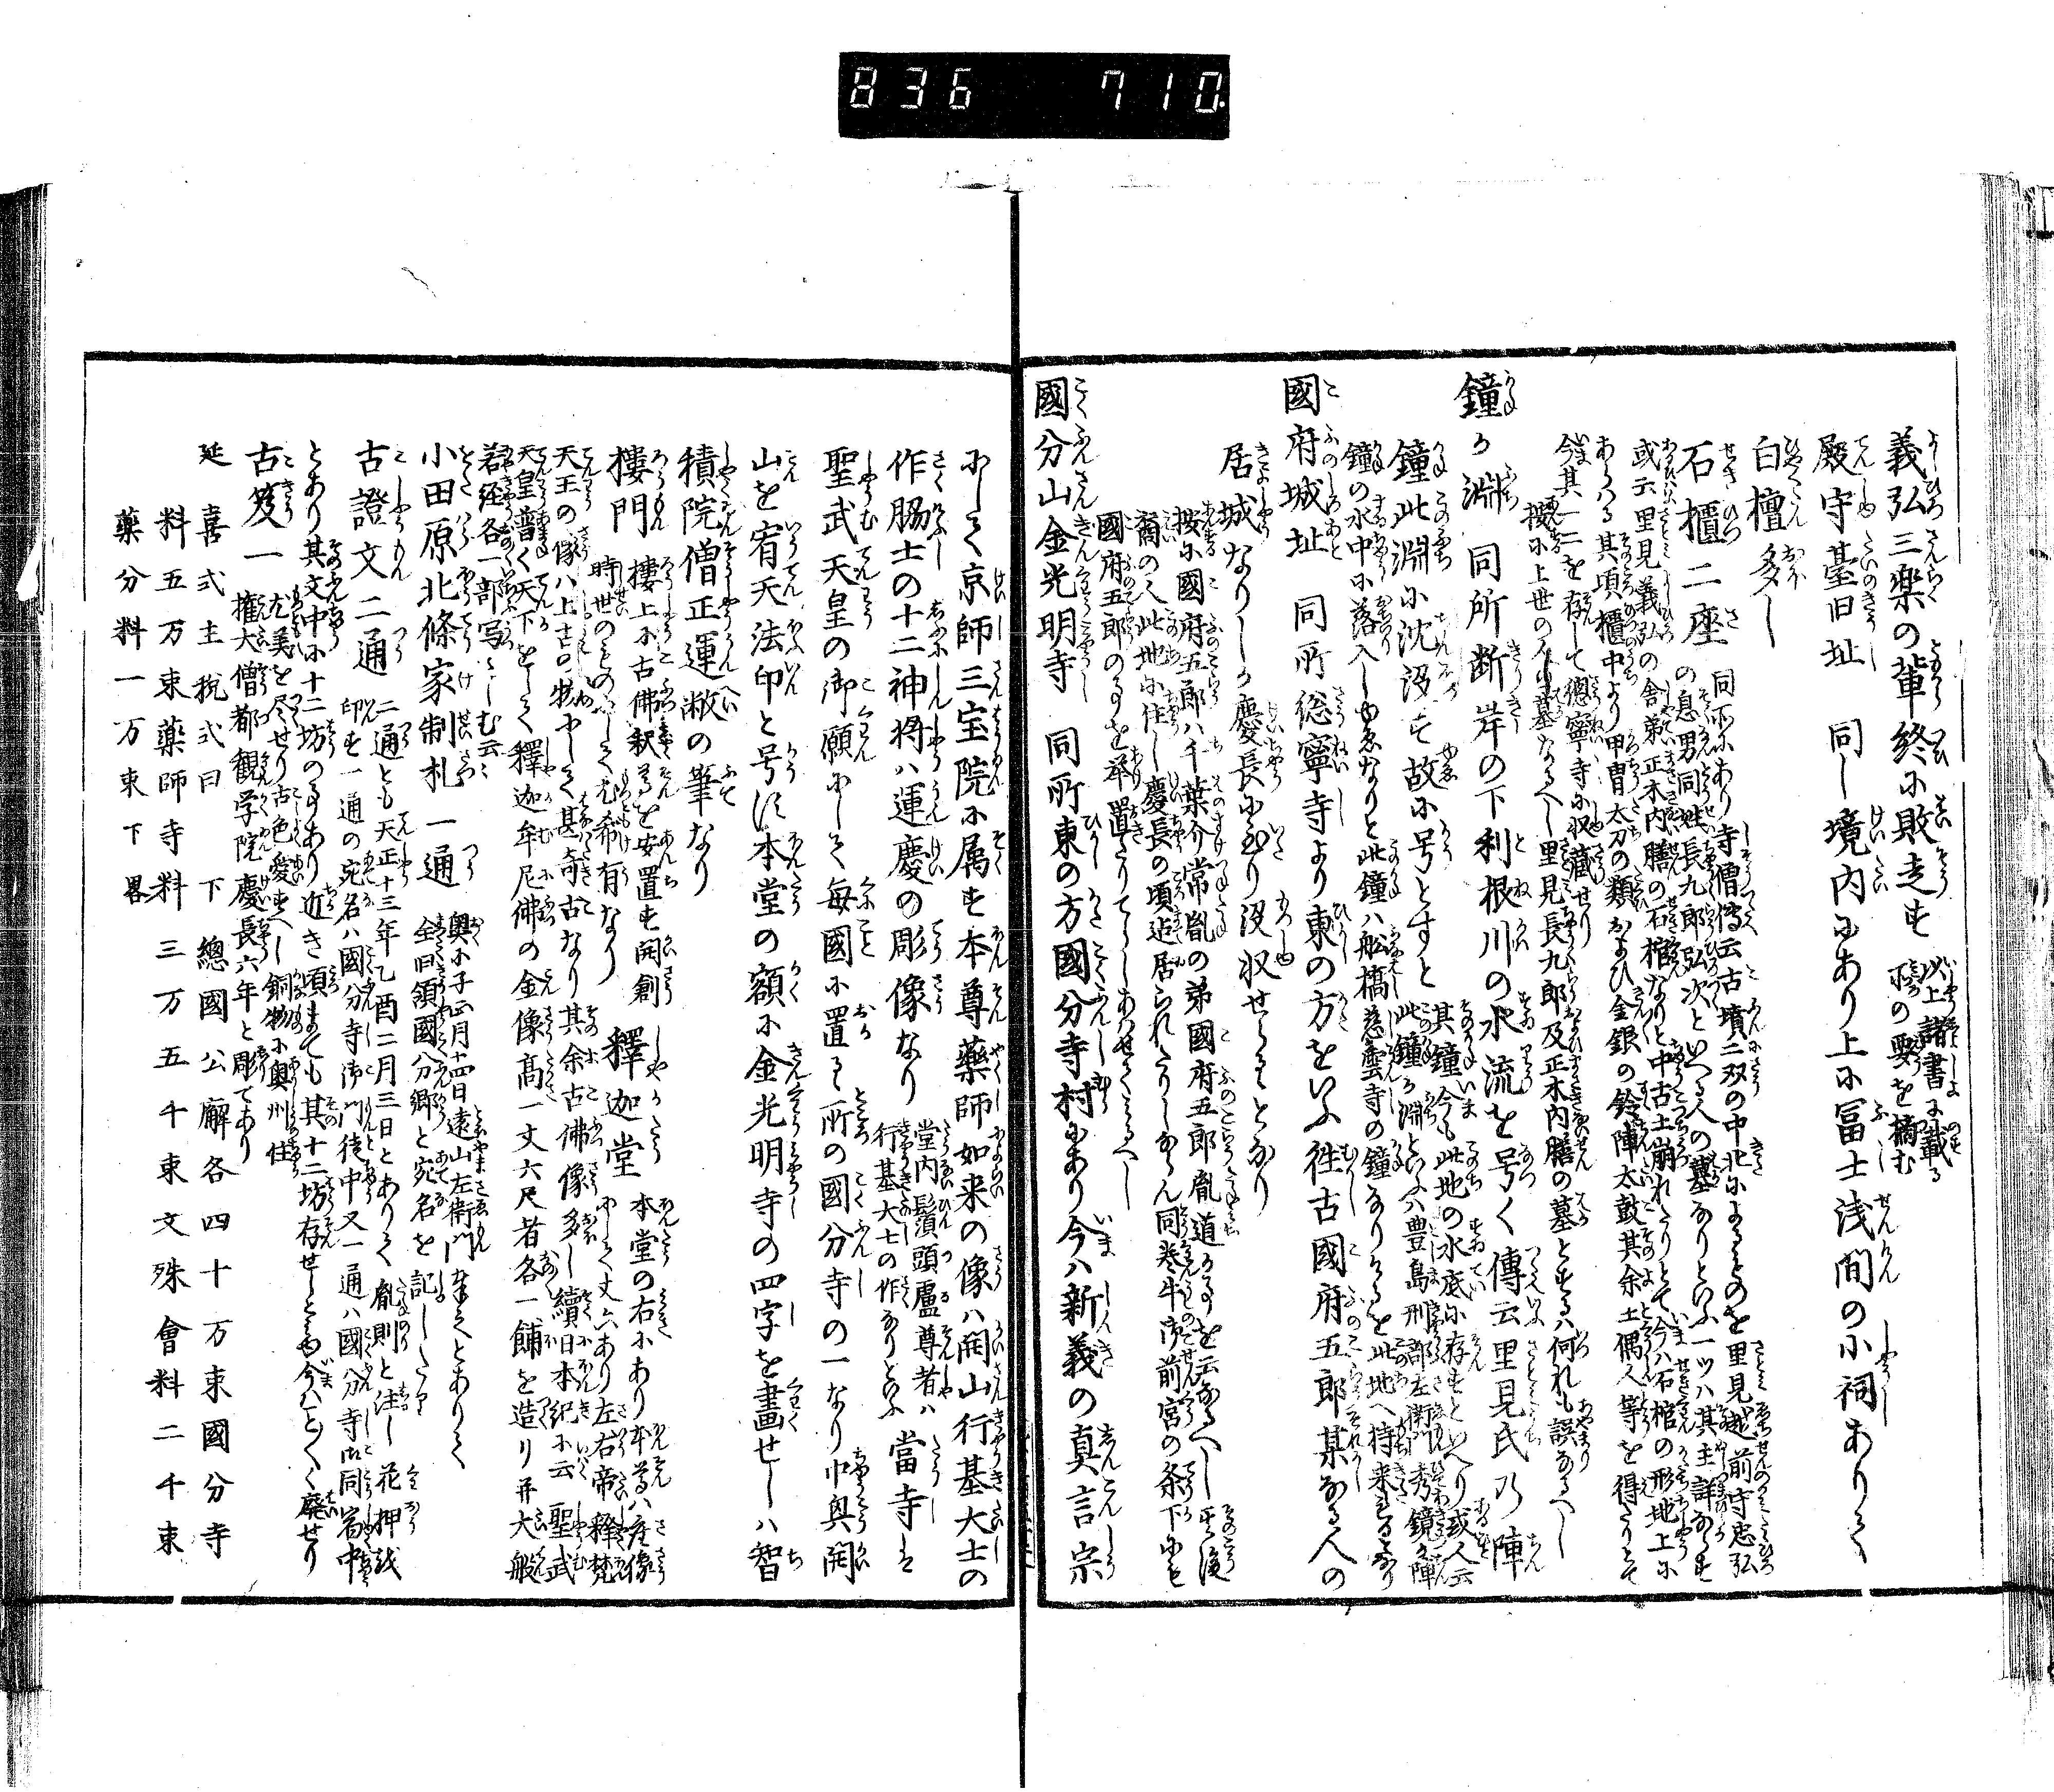 836 710.
義弘三楽の輩終に敗走す 以上諸書に載る
所の要を摘む
殿守臺旧址 同し境内にあり上に冨士浅間の小祠ありて
白檀多し
石櫃二座 同所にあり寺僧傳云古墳二双の中北によるものを里見越前守忠弘
の息男同姓長九郎弘次といへる人の墓なりといふ一ツハ其主詳ならす
或云里見義弘の舎弟正木内膳の石棺なりと中古土崩れたりとて今ハ石棺の形地上に
あらハる其頃櫃中より甲冑太刀の類および金銀の鈴陣太鼓其余土偶人等を得たりとて
今其一二を存して總寧寺に収蔵せり
按に上世の人の墓なるへし里見長九郎及正木内膳の墓とするハ何れも誤なるへし
鐘か淵 同所断岸の下利根川の水流を号く傳云里見氏乃陣
鐘此淵に沈没す故に号とすと 其鐘今も此地の水底に存すといへり或人云
此鐘か淵といふハ豊島刑部左衛門秀鏡か陣
鐘の水中に落入しゆゑなりと此鐘ハ舩橋慈雲寺の鐘なりけるを此地へ持来るとなり
國府城址 同所総寧寺より東の方をいふ往古國府五郎某なる人の
居城なりしか慶長に至り没収せらるとなり
按に國府五郎ハ千葉介常胤の弟國府五郎胤道か事を云なるへし其後
裔の人此地に住し慶長の頃迄居られたりしならん同巻牛御前宮の条下にも
國府五郎の事を挙置たりてらしあハせてみるへし
國分山金光明寺 同所東の方國分寺村にあり今ハ新義の真言宗
にして京師三宝院に属す本尊薬師如来の像ハ開山行基大士の
作脇士の十二神将ハ運慶の彫像なり 堂内鬚頭盧尊者ハ
行基大士の作なりといふ 當寺は
聖武天皇の御願にして毎國に置る所の國分寺の一なり中興開
山を宥天法印と号す本堂の額に金光明寺の四字を畫せしハ智
積院僧正運敞の筆なり
樓門 樓上に古佛釈尊を安置す開創
時世のものにして尤希有なり 釋迦堂 本堂の右にあり本尊ハ座像
にして丈六あり左右帝釋梵
天王の像ハ上古の物にして甚奇古なり其余古佛像多し續日本紀に云聖武
天皇普く天下をして釋迦牟尼佛の金像髙一丈六尺者各一鋪を造り并大般
若経各一部写さしむ云々
小田原北條家制札一通 奥に子正月十四日遠山左衛門奉之とありて
全旧領國分郷と宛名を記したり
古證文二通 二通とも天正十三年乙酉二月三日とありて胤則と注し花押或
印す一通の宛名ハ國分寺御門徒中又一通ハ國分寺御同宿中
とあり其文中に十二坊の事あり近き頃まても其十二坊存せしとも今ハことことく廃せり
古笈一 尤美を尽せり古色愛すへし銅物に奥州住
権大僧都観学院慶長六年と彫てあり
延喜式主税式曰 下總國公廨各四十万束國分寺
料五万束薬師寺料三万五千束文殊會料二千束
藥分料一万束下畧